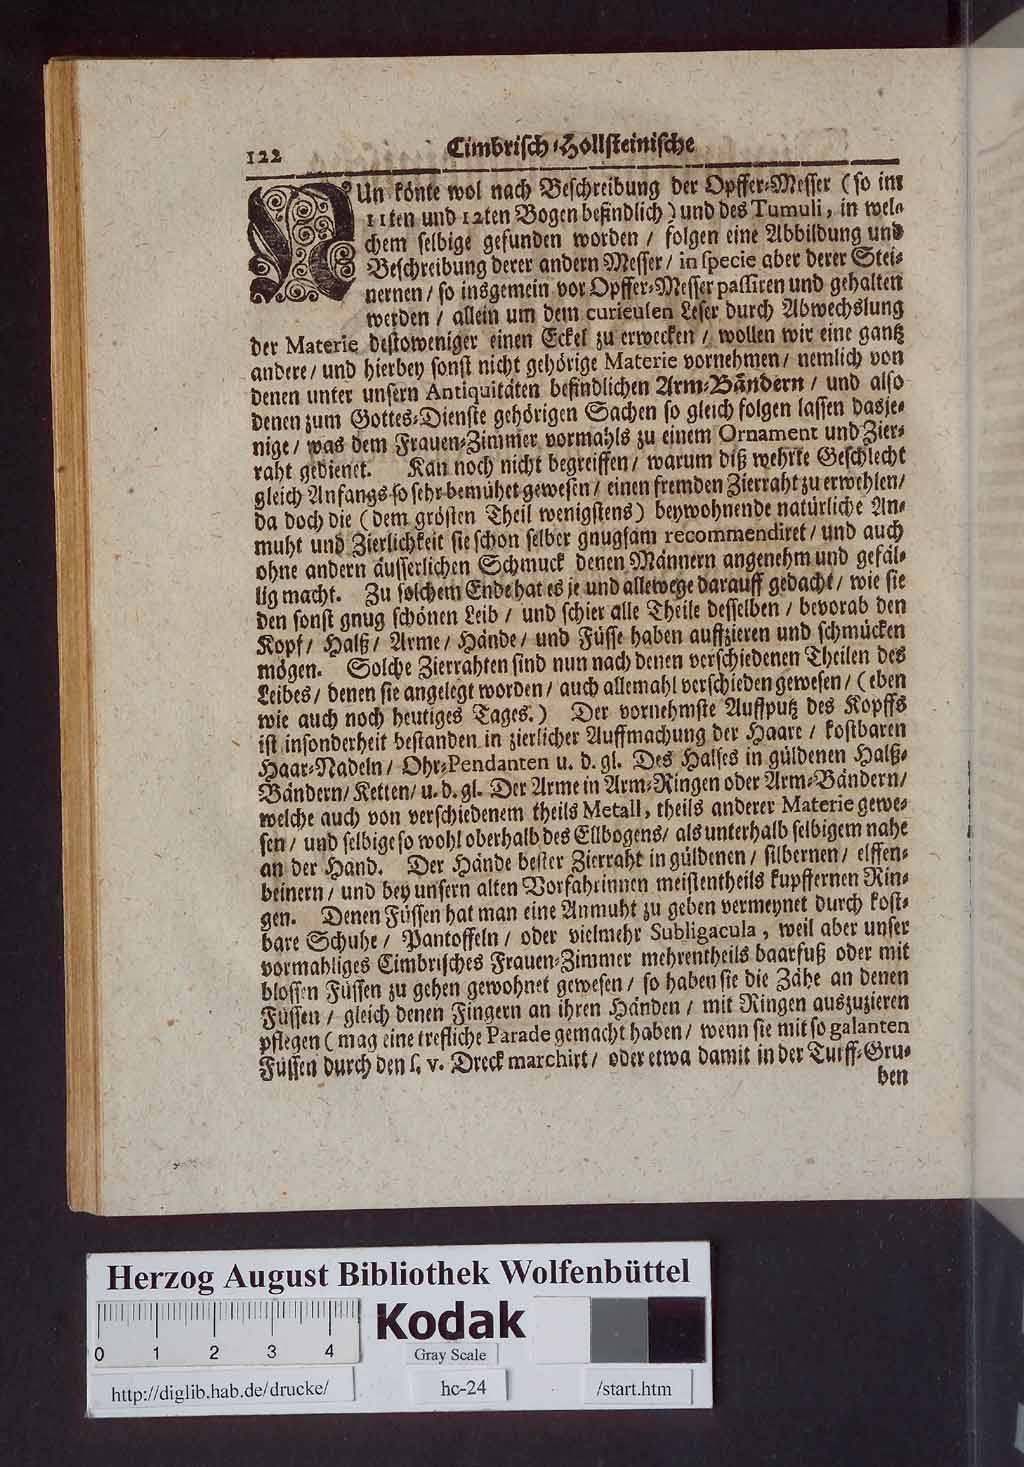 122
Cimbrisch-Hollsteinische
NUn könte wol nach Beschreibung der Opffer-Messer (so im
11ten und 12ten Bogen befindlich) und des Tumuli, in wel-
chem selbige gefunden worden / folgen eine Abbildung und
Beschreibung derer andern Messer / in specie aber derer Stei-
nernen / so insgemein vor Opffer-Messer passiren und gehalten
werden / allein um dem curieusen Leser durch Abwechslung
der Materie destoweniger einen Eckel zu erwecken / wollen wir eine gantz
andere / und hierbey sonst nicht gehörige Materie vornehmen / nemlich von
denen unter unsern Antiquitäten befindlichen Arm-Bändern / und also
denen zum Gottes-Dienste gehörigen Sachen so gleich folgen lassen dasje-
nige / was dem Frauen-Zimmer vormahls zu einem Ornament und Zier-
raht gedienet. Kan noch nicht begreiffen / warum diß wehrte Geschlecht
gleich Anfangs so sehr bemühet gewesen / einen fremden Zierraht zu erwehlen /
da doch die (dem grösten Theil wenigstens) beywohnende natürliche An-
muht und Zierlichkeit sie schon selber gnugsam recommendiret / und auch
ohne andern äusserlichen Schmuck denen Männern angenehm und gefäl-
lig macht. Zu solchem Ende hat es je und allewege darauff gedacht / wie sie
den sonst gnug schönen Leib / und schier alle Theile desselben / bevorab den
Kopf / Halß / Arme / Hände / und Füsse haben auffzieren und schmücken
mögen. Solche Zierrahten sind nun nach denen verschiedenen Theilen des
Leibes / denen sie angelegt worden / auch allemahl verschieden gewesen / (eben
wie auch noch heutiges Tages.) Der vornehmste Auffputz des Kopffs
ist insonderheit bestanden in zierlicher Auffmachung der Haare / kostbaren
Haar-Nadeln / Ohr-Pendanten u. d. gl. Des Halses in güldenen Halß-
Bändern / Ketten / u. d. gl. Der Arme in Arm-Ringen oder Arm-Bändern /
welche auch von verschiedenem theils Metall, theils anderer Materie gewe-
sen / und selbige so wohl oberhalb des Ellbogens / als unterhalb selbigem nahe
an der Hand. Der Hände bester Zierraht in güldenen / silbernen / elffen-
beinern / und bey unsern alten Vorfahrinnen meistentheils kupffernen Rin-
gen. Denen Füssen hat man eine Anmuht zu geben vermeynet durch kost-
bare Schuhe / Pantoffeln / oder vielmehr Subligacula, weil aber unser
vormahliges Cimbrisches Frauen-Zimmer mehrentheils baarfuß oder mit
blossen Füssen zu gehen gewohnet gewesen / so haben sie die Zähe an denen
Füssen / gleich denen Fingern an ihren Händen / mit Ringen auszuzieren
pflegen (mag eine trefliche Parade gemacht haben / wenn sie mit so galanten
Füssen durch den s. v. Dreck marchirt / oder etwa damit in der Turff-Gru-
ben
Herzog August Bibliothek Wolfenbüttel
Kodak
0 1 2 3 4
Gray Scale
http://diglib.hab.de/drucke/
hc-24
/start.htm